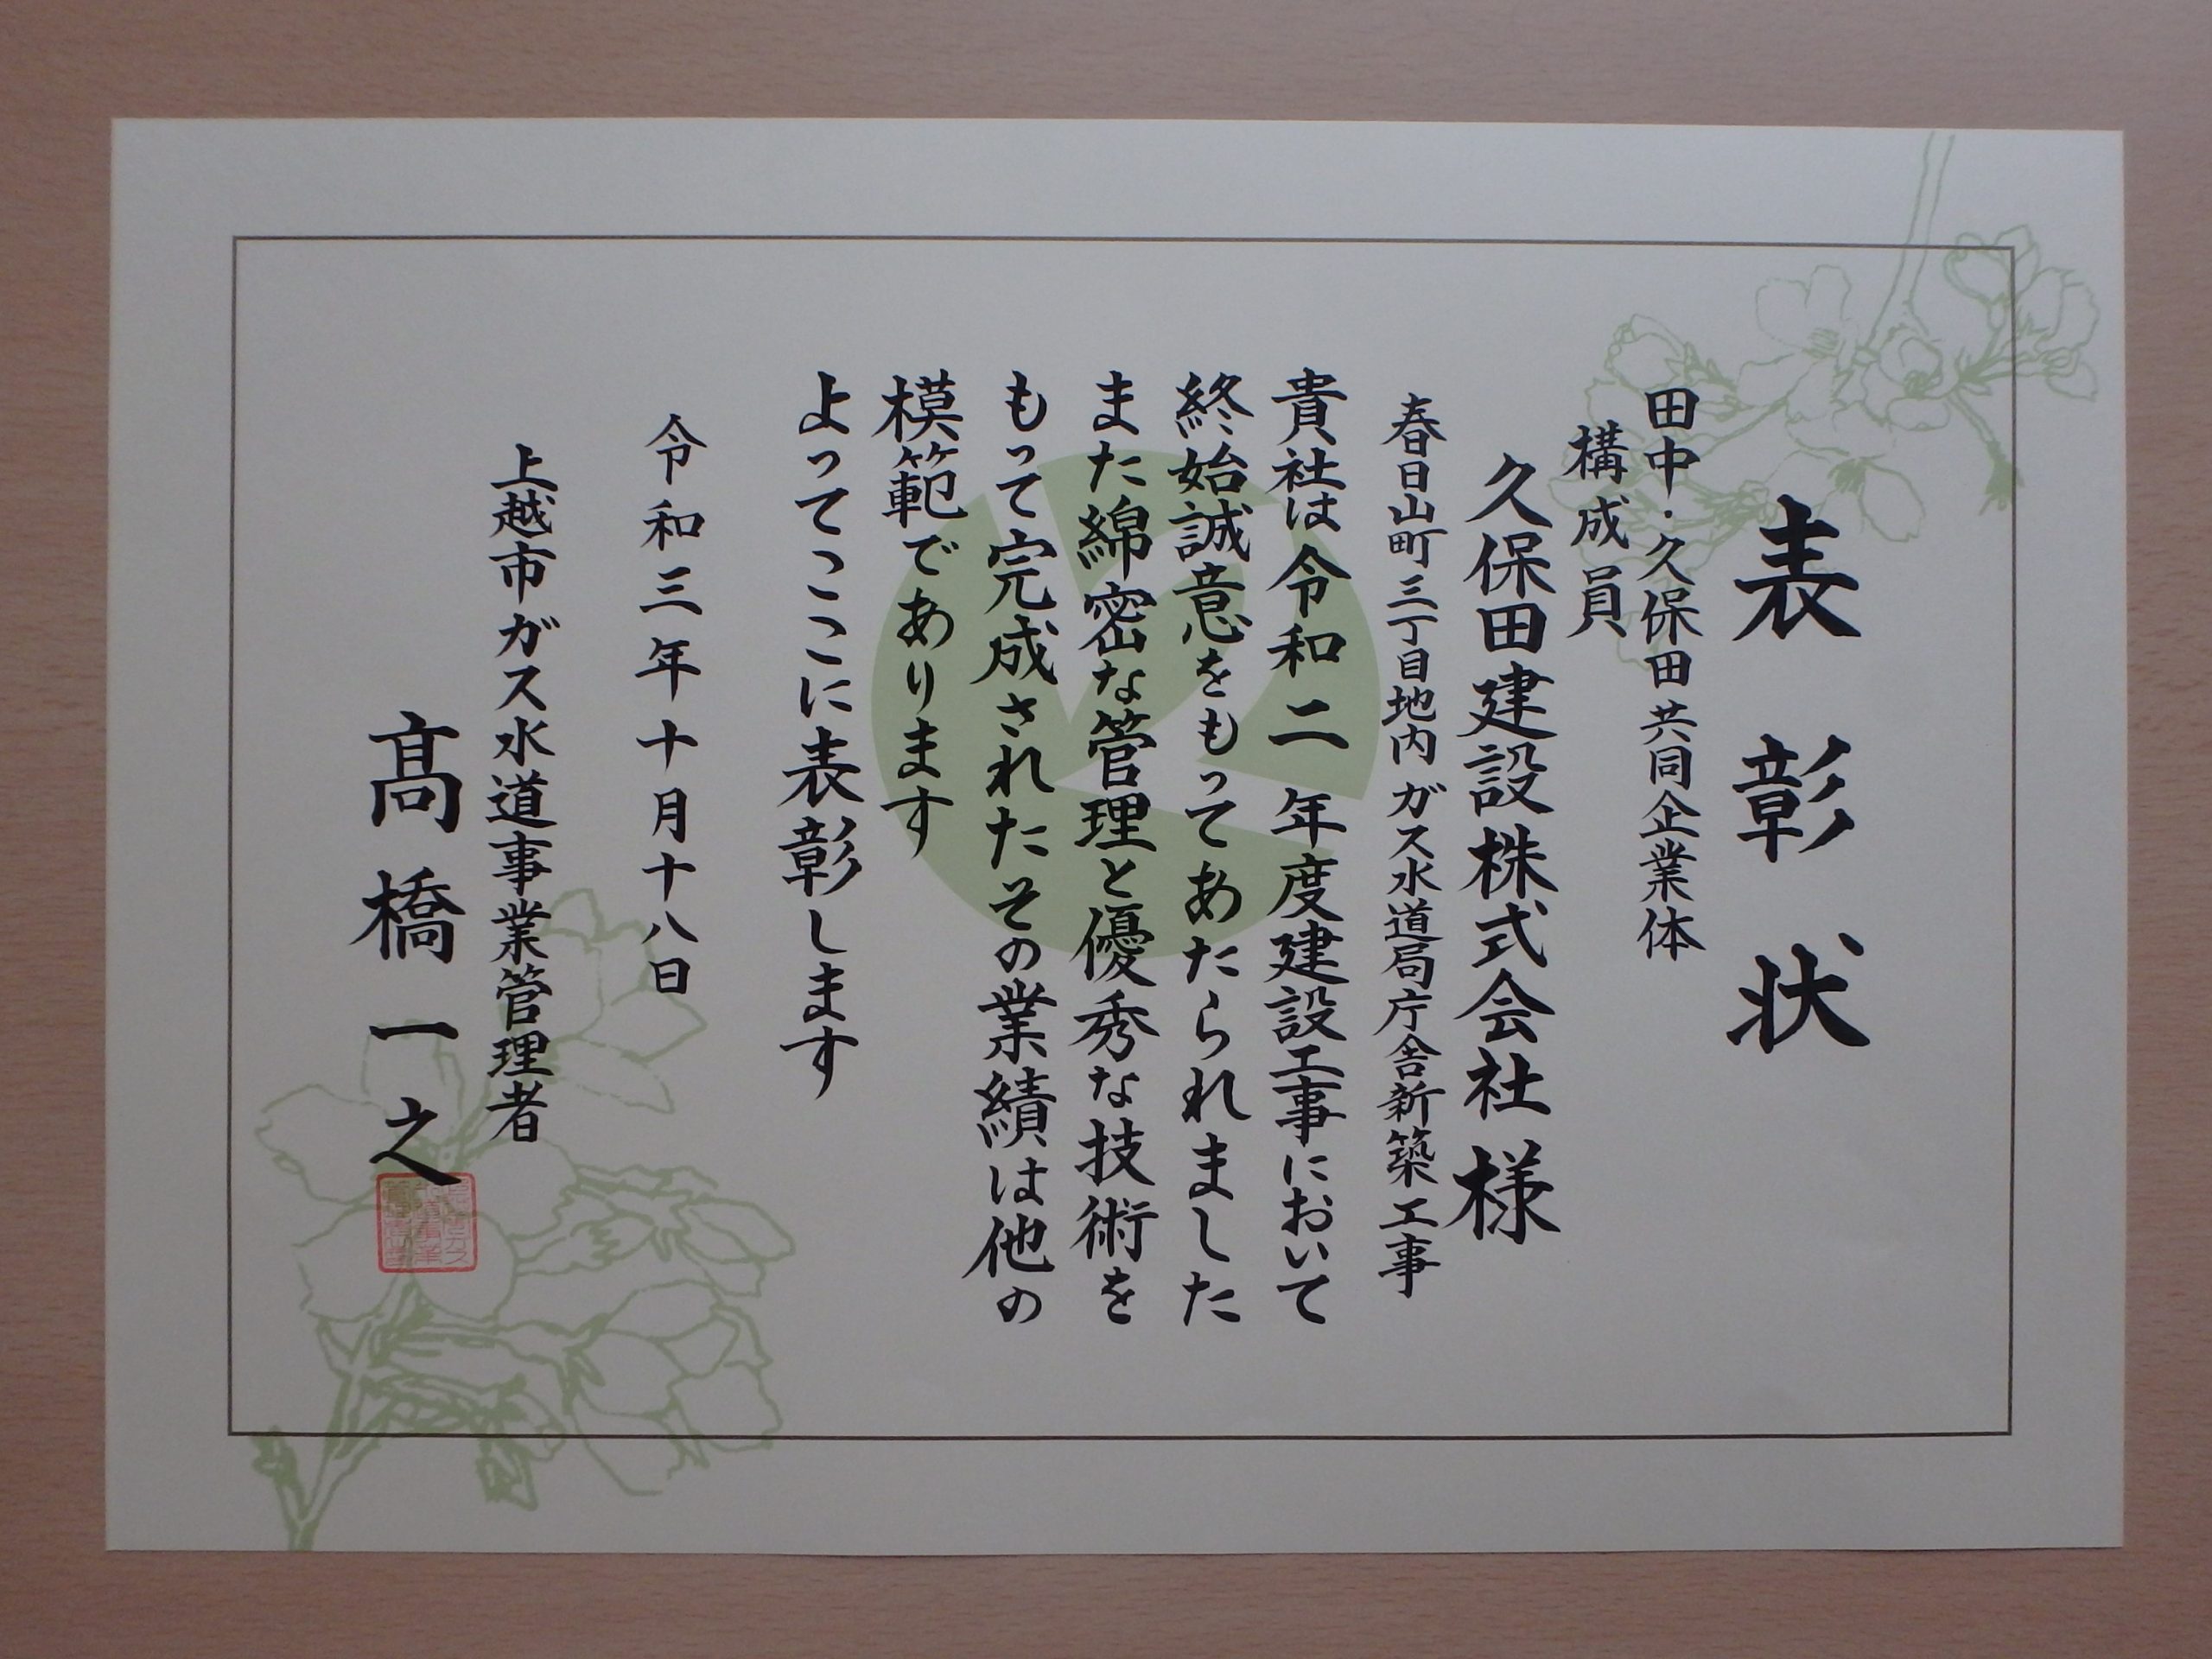 表彰状
田中・久保田共同企業体
構成員
久保田建設株式会社様
春日山町三丁目地内 ガス水道局庁舎新築工事
貴社は令和二年度建設工事において
終始誠意をもってあたられました
また綿密な管理と優秀な技術を
もって完成されたその業績は他の
模範であります
よってここに表彰します
令和三年十月十八日
上越市ガス水道事業管理者
髙橋一之